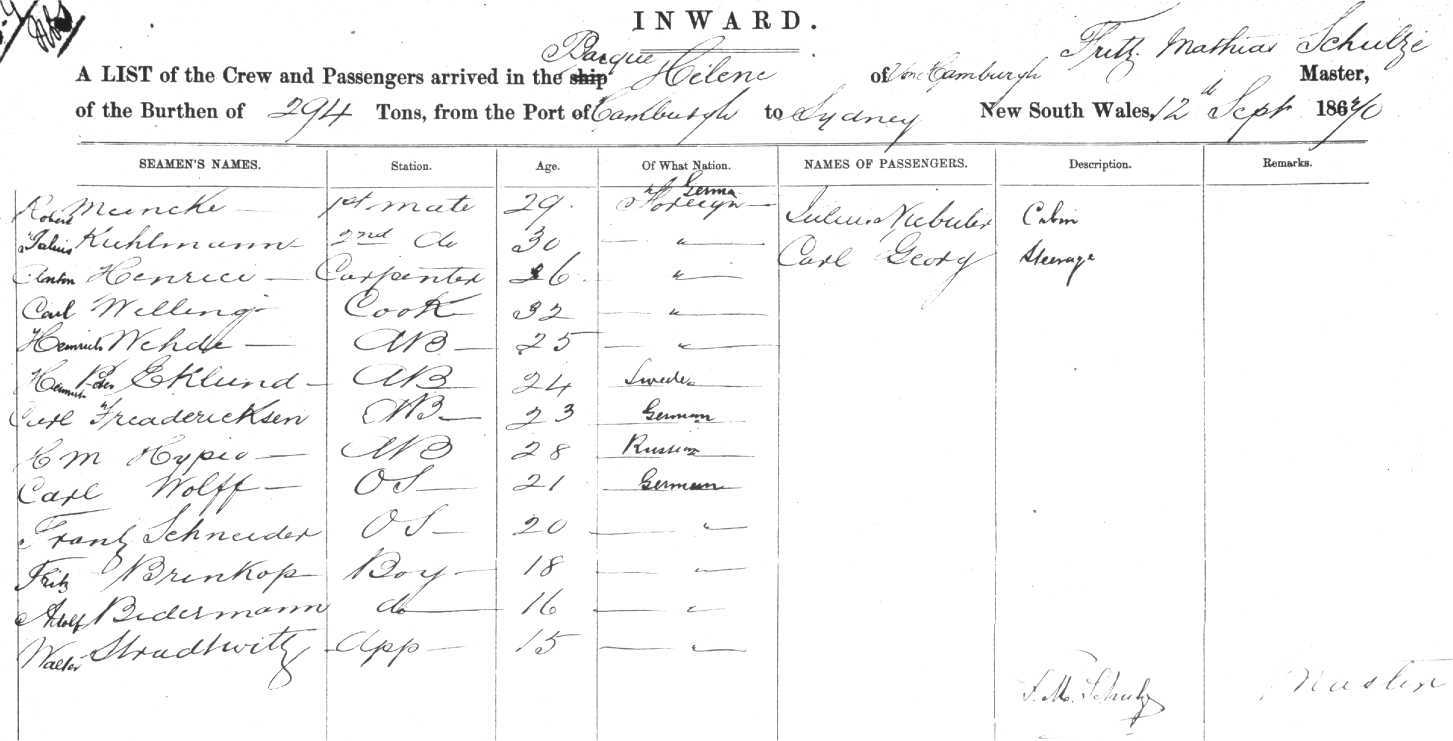 INWARD.
Barque Fritz Mathias Schultze
A LIST of the Crew and Passengers arrived in the ship Helene of Hamburgh Master,
of the Burthen of 294 Tons, from the Port of Hamburgh to Sydney New South Wales, 12th Sept 186
SEAMEN'S NAMES. Station. Age. Of What Nation. NAMES OF PASSENGERS. Description. Remarks.
Robert Meincke 1st mate 29 Foreign German Julius Niebuler Cabin
Julius Kuhlmann 2nd do 30 " Carl Georg Steerage
Henrici Carpenter 26 "
Carl Welling Cook 32 "
Heinrich Wehde AB 25 "
Heinrich Peter Eklund AB 24 Swede
Carl Freadericksen AB 23 German
H M Hypio AB 28 Russian
Carl Wolff OS 21 German
Frantz Schneider OS 20 "
Fritz Brinkop Boy 18 "
Adolf Bedermann do 16 "
Walter Stradtwitz App 15 "
F. M. Schultz Master